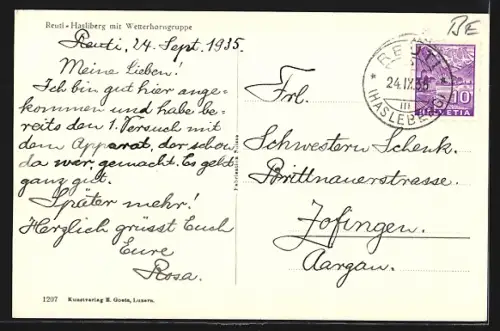 Reuti-Hasliberg mit Wetterhorngruppe
Reuti, 24. Sept. 1935.
Meine Lieben!
Ich bin gut hier ange-
kommen und habe be-
reits den 1. Versuch mit
dem Apparat, der schon
da war, gemacht. Es geht
ganz gut.
Später mehr!
Herzlich grüsst Euch
Eure
Rosa.
1297 Kunstverlag E. Goetz, Luzern.
BE
REUTI
24.IX.35
(HASLEBERG)
10
HELVETIA
Frl.
Schwestern Schenk.
Brittnauerstrasse.
Zofingen.
Aargau.